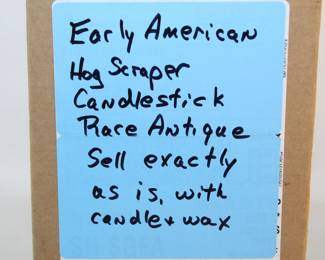 Early American
Hog Scraper
Candlestick
Rare Antique
Sell exactly
as is, with
candle + wax